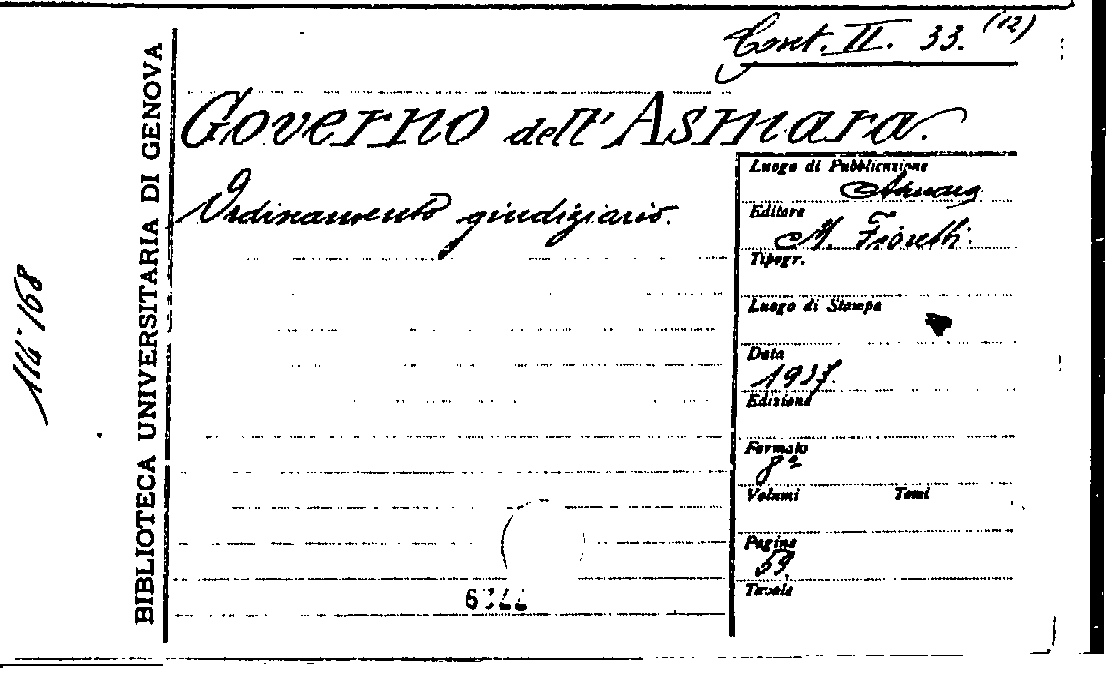 Cons. II. 33. (12)
BIBLIOTECA UNIVERSITARIA DI GENOVA
Governo dell'Asmara.
Ordinamento giudiziario.
Luogo di Pubblicazione
Asmara
Editore
M. Fioretti.
Tipogr.
Luogo di Stampa
Data
1937.
Edizione
Formato
8°
Volumi Tomi
Pagine
59.
Tavole